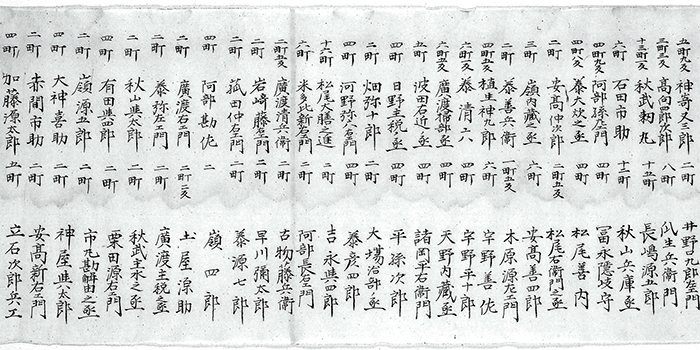 五町九反 神奇又三郎
三町三反 高向四郎次郎
十三町三反 秋武籾丸
六町 石田市助
四町九反 阿部孫左エ門
四町八反 秦大炊之丞
二町 安髙仲次郎
三町 嶺内蔵之丞
二町五反 秦善兵衛
四町五反 植生神九郎
六町五反 秦清六
六町五反 廣渡掃部之丞
五町 波田右近之丞
四町 日野主税之丞
二町 畑弥十郎
四町 河野弥三右エ門
十六町 松尾大膳之進
六町 米多比新右エ門
二町五反 廣渡清兵衛
二町 岩崎藤左エ門
二町 菰田仲右エ門
四町 阿部勘佐
二町 廣渡右エ門
二町 秦弥左エ門
二町 秋山與太郎
四町 有田與四郎
二町 嶺源五郎
四町 大神喜助
二町 赤間市助
四町 加藤源太郎
二町 井野口九郎左エ門
八町 瓜生兵衛門
十四町 長嶋源五郎
十二町 秋山兵庫之丞
五町 冨永隠岐守
二町 松尾善内
二町五反 松尾右衛門之丞
六町 安髙善四郎
一町五反 木原源左エ門
六町 宇野善佐
二町 宇野平十郎
四町 天野内蔵之丞
二町 諸岡平右衛門
三町 平孫次郎
二町 大場治部之丞
四町 秦彦四郎
二町 吉永與四郎
二町 阿部長左エ門
三町 古物藤兵衛
二町 早川彌太郎
二町 秦源七郎
二 嶺四郎
二町二反 土屋源助
二町 廣渡主税之丞
二町 秋武主水之丞
二町 粟田源右エ門
二町 市丸勘解由之丞
二町 神屋與八太郎
二町 安髙新右エ門
五町 立石次郎兵エ